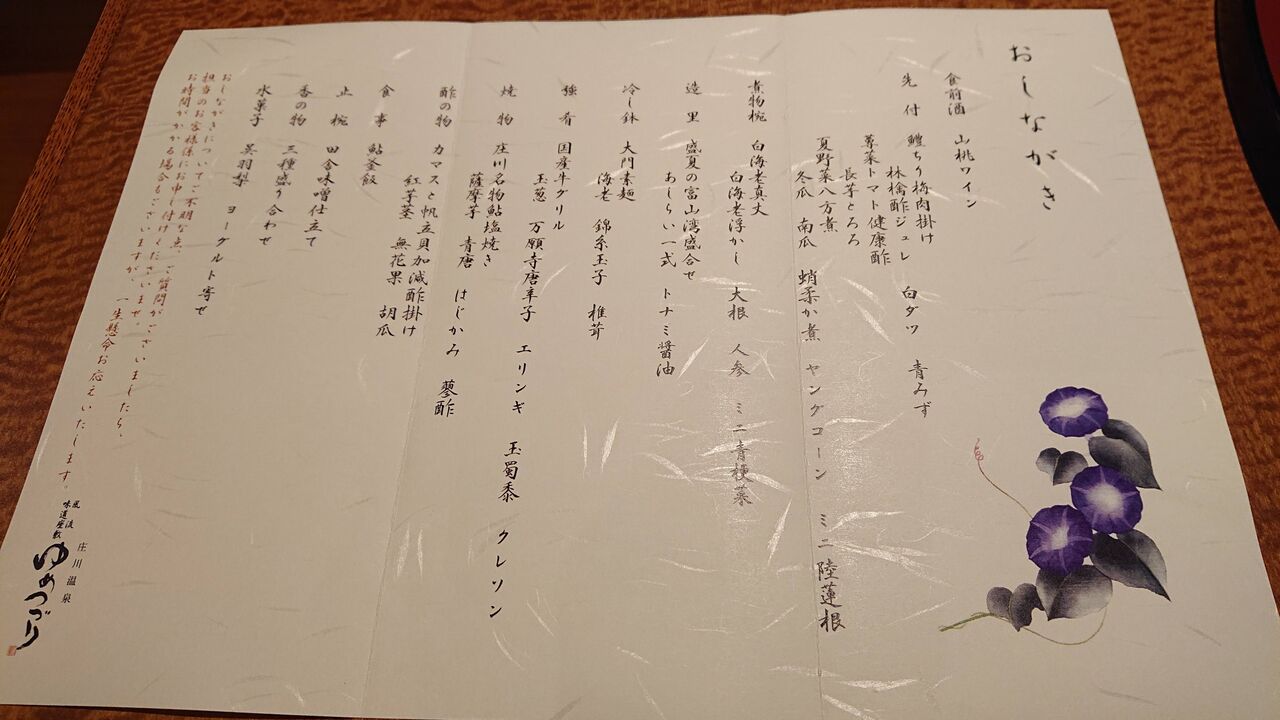 おしながき
食前酒　山桃ワイン
先　付　鱧ちり梅肉掛け
林檎酢ジュレ　白ダツ　青みず
蓴菜トマト健康酢
長芋とろろ
夏野菜八方煮
冬瓜　南瓜　蛸柔か煮　ヤングコーン　ミニ陸蓮根
煮物椀　白海老真丈
白海老浮かし　大根　人参　ミニ青梗菜
造　里　盛夏の富山湾盛合せ
あしらい一式　トナミ醤油
冷し鉢　大門素麺
海老　錦糸玉子　椎茸
強　肴　国産牛グリル
玉葱　万願寺唐辛子　エリンギ　玉蜀黍　クレソン
焼　物　庄川名物鮎塩焼き
薩摩芋　青唐　はじかみ　蓼酢
酢の物　カマスと帆立貝加減酢掛け
紅芋茎　無花果　胡瓜
食　事　鮎釜飯
止　椀　田舎味噌仕立て
香の物　三種盛り合わせ
水菓子　呉羽梨　ヨーグルト寄せ
おしながきについてご不明な点、ご質問がございましたら、
担当のお客様係にお申し付けくださいませ。
お時間がかかる場合もございますが、一生懸命お応えいたします。
風流
味道座敷
庄川温泉
ゆめつづり